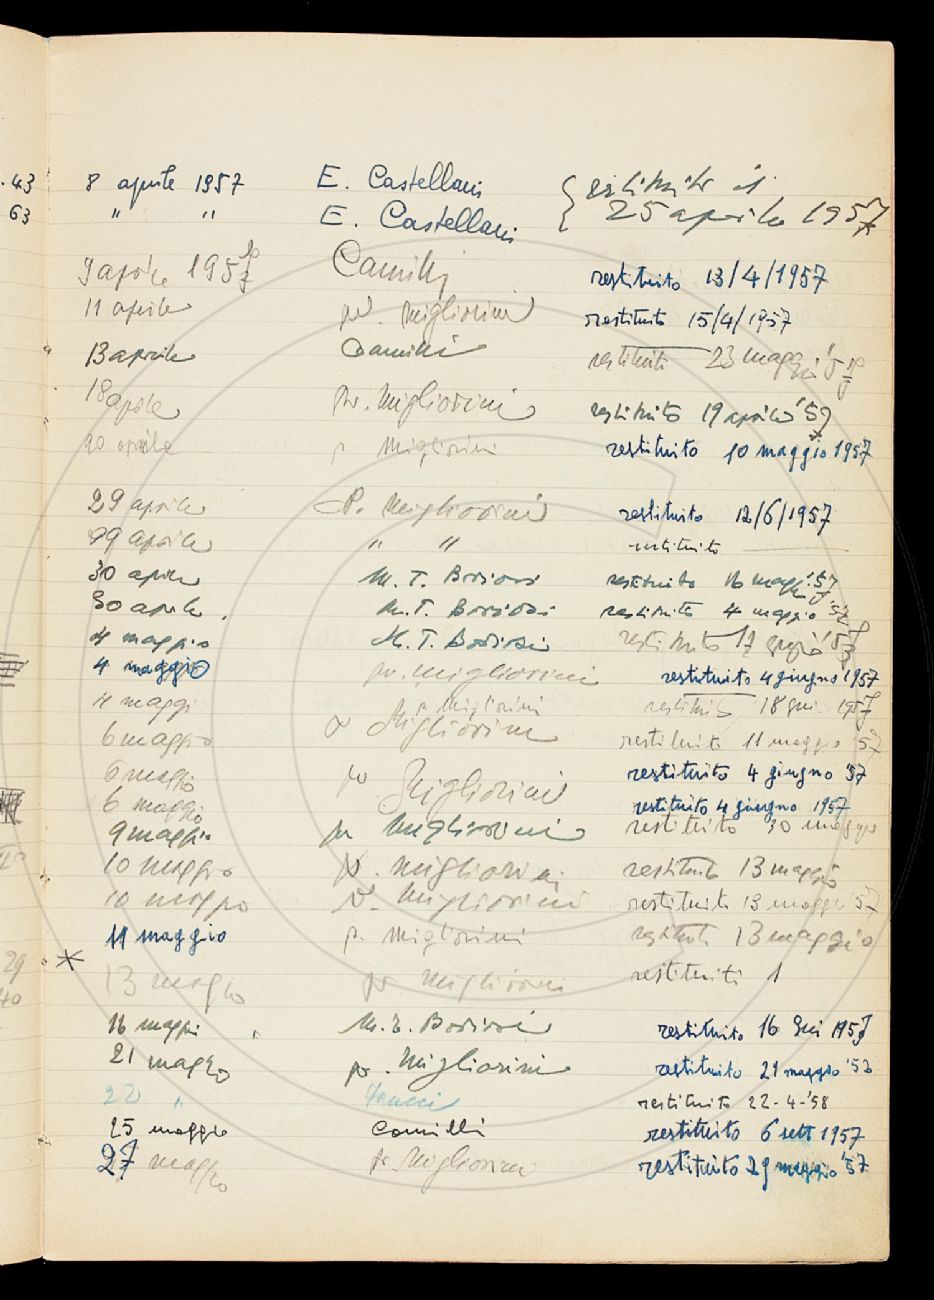 . 43 8 aprile 1957 E. Castellani { restituito il
63 " " E. Castellani 25 aprile 1957
9 aprile 1957 Camilli restituito 13/4/1957
11 aprile Migliorini restituito 15/4/1957
13 aprile Camilli restituito 23 maggio
18 aprile Migliorini restituito 19 aprile '57
20 aprile p. Migliorini restituito 10 maggio 1957
29 aprile P. Migliorini restituito 12/6/1957
29 aprile " " restituito
30 aprile M. T. restituito 16 maggio '57
30 aprile M. T. restituito 4 maggio '57
4 maggio M. T. restituito 17
4 maggio Migliorini restituito 4 giugno 1957
4 maggio p. Migliorini restituito 18 1957
6 maggio Migliorini restituito 11 maggio '57
6 maggio Migliorini restituito 4 giugno '57
6 maggio restituito 4 giugno 1957
9 maggio Migliorini restituito 30 maggio
10 maggio Migliorini restituito 13 maggio
10 maggio Migliorini restituito 13 maggio 57
11 maggio p. Migliorini restituiti 13 maggio
29 * 13 maggio Migliorini restituiti 1
16 maggio restituito 16 1957
21 maggio Migliorini restituito 21 maggio '57
22 " restituito 22-4-'58
25 maggio Camilli restituito 6 sett 1957
27 maggio Migliorini restituito 29 maggio '57